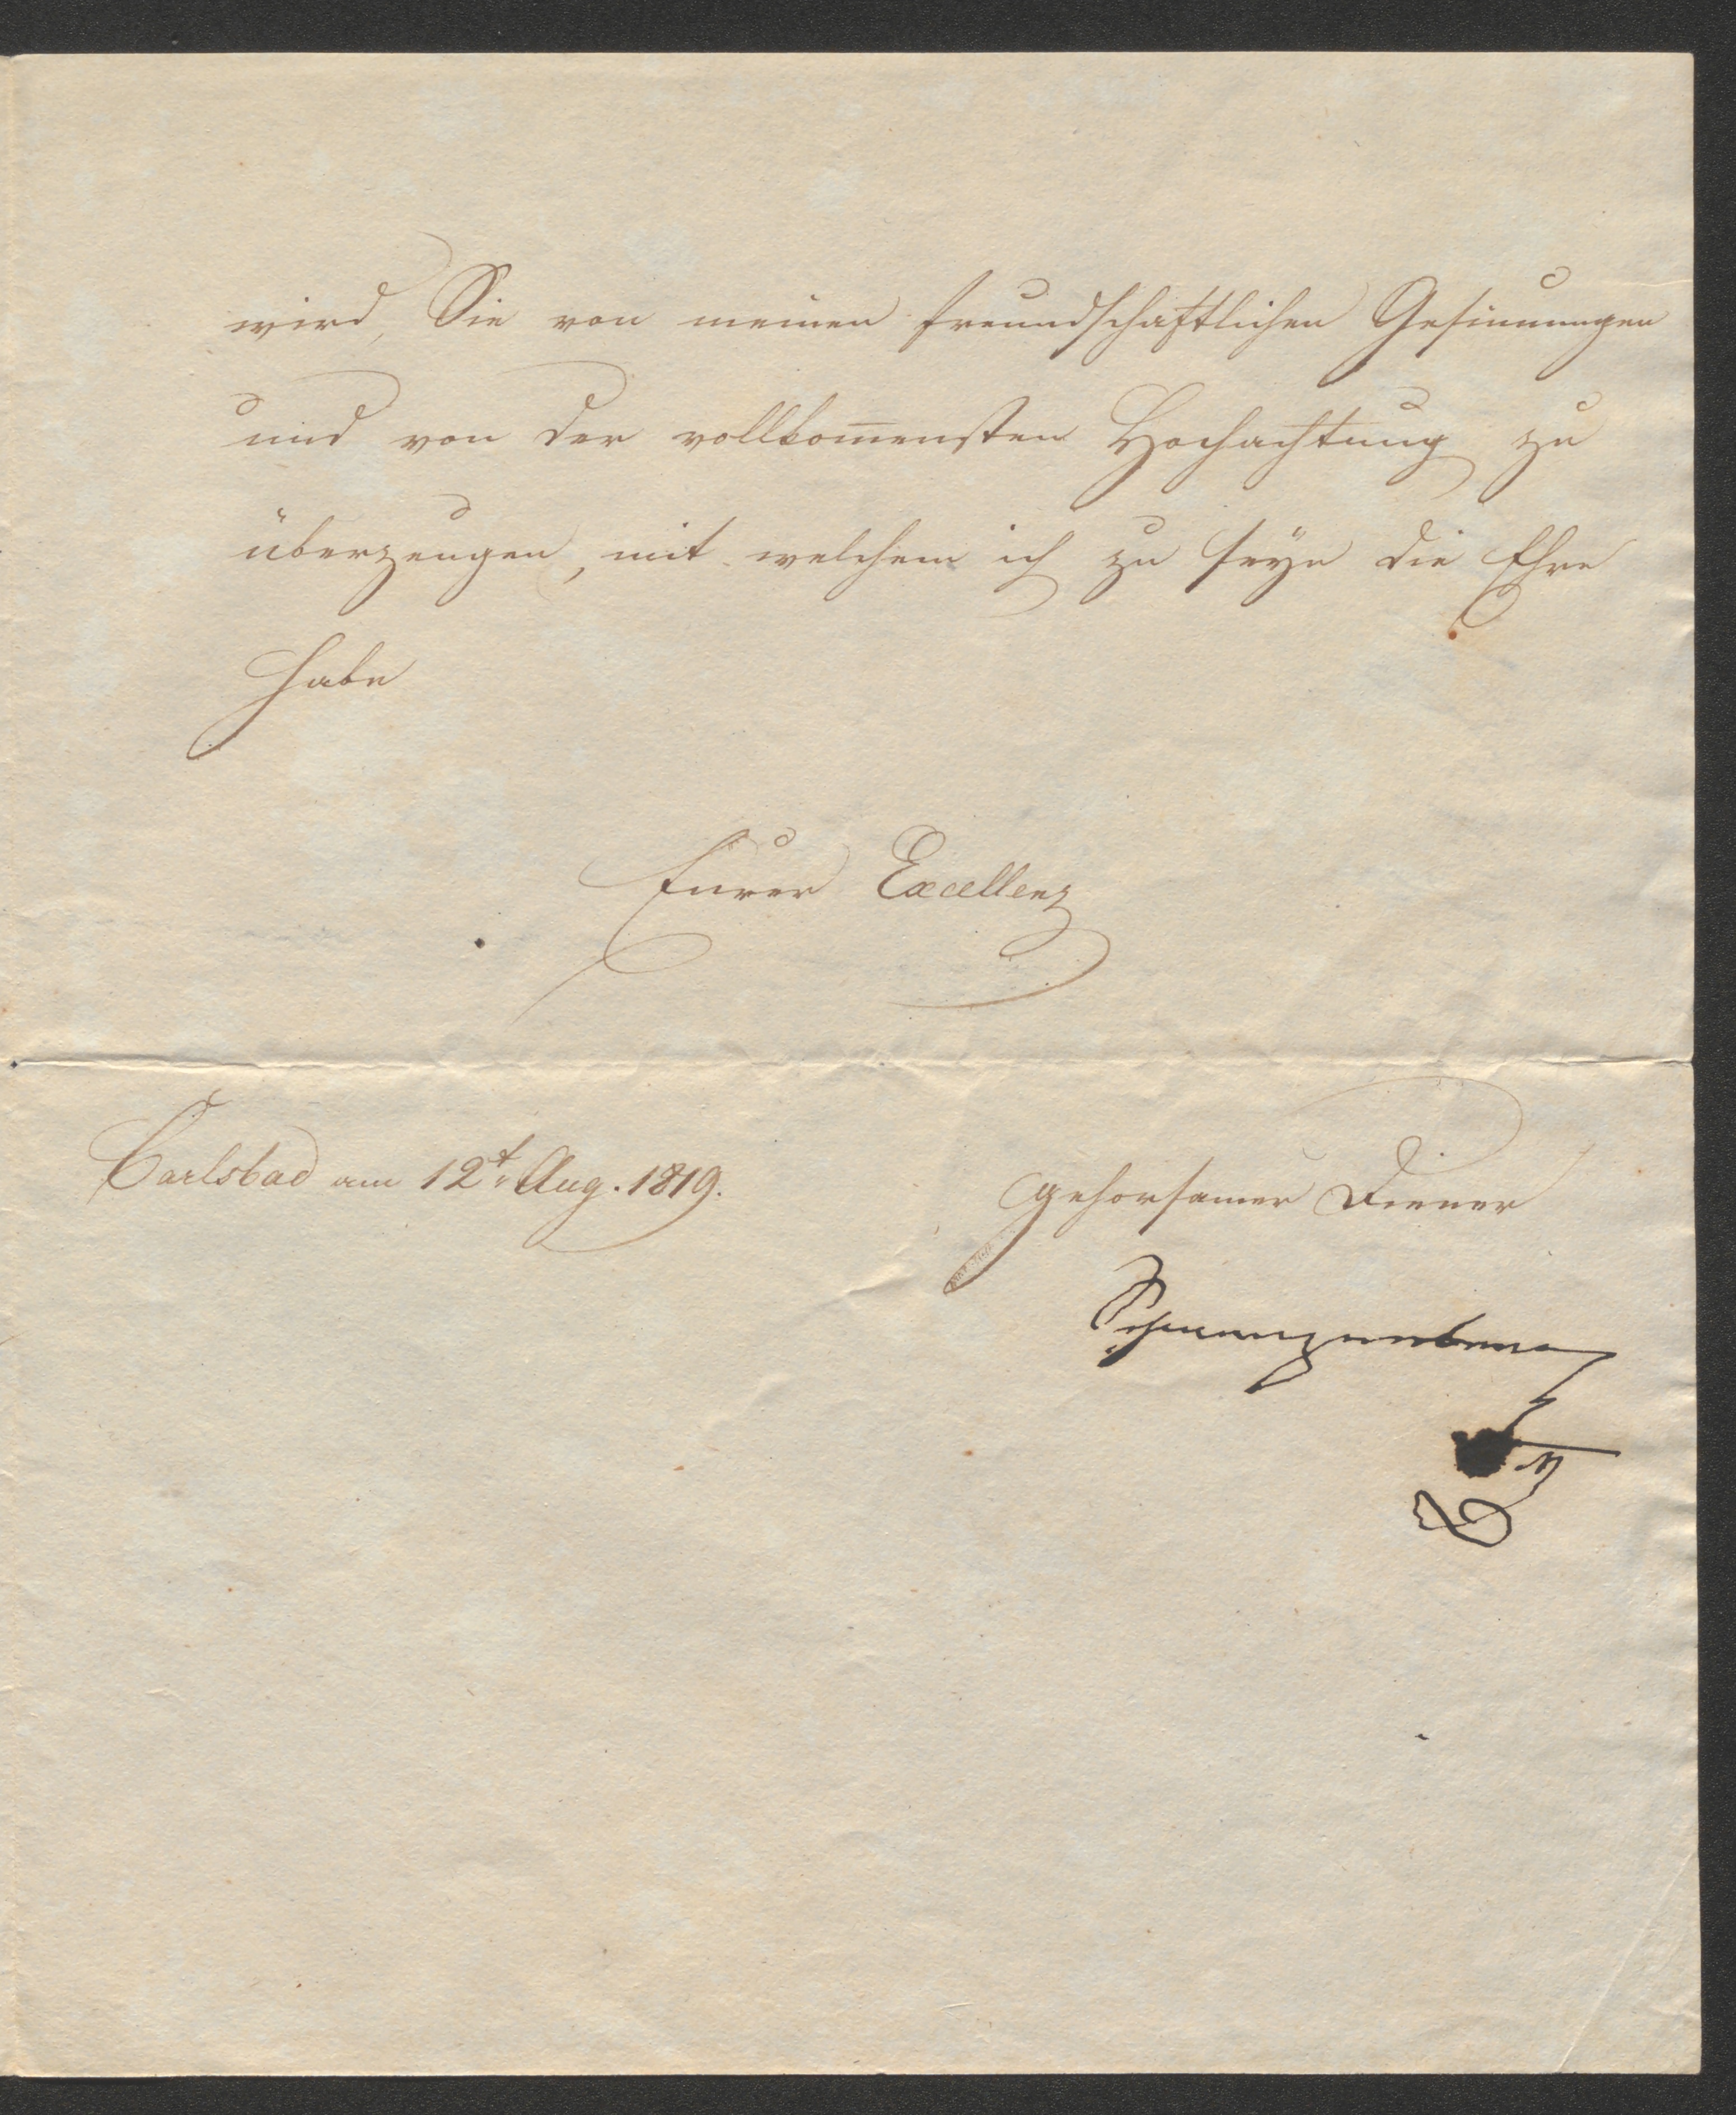 wird, Sie von meinen freundschaftlichen Gesinnungen
und von der vollkom̅ensten Hochachtung zu
überzeugen, mit welchem ich zu seyn die Ehre
habe
Eurer Excellenz
Carlsbad am 12t. Aug. 1819.
gehorsamer Diener
Schwarzenberg